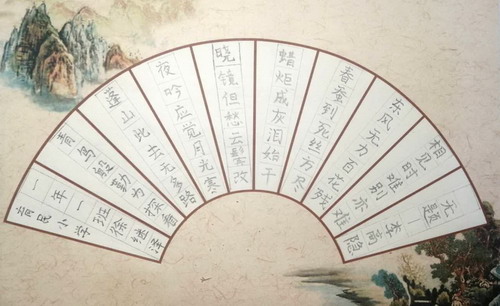 无题—李商隐
相见时难别亦难
东风无力百花残
春蚕到死丝方尽
蜡炬成灰泪始干
晓镜但愁云鬓改
夜吟应觉月光寒
蓬山此去无多路
青鸟殷勤为探看
一年一班徐继泽
育民小学